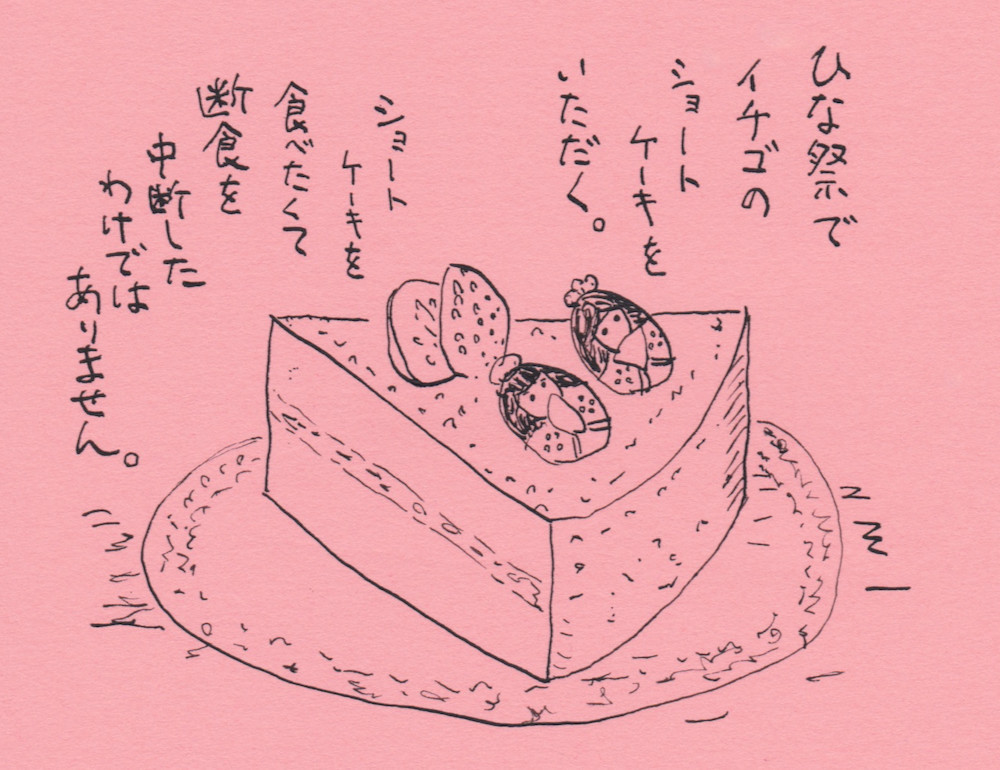 ひな祭で
イチゴの
ショート
ケーキを
いただく。
ショート
ケーキを
食べたくて
断食を
中断した
わけでは
ありません。